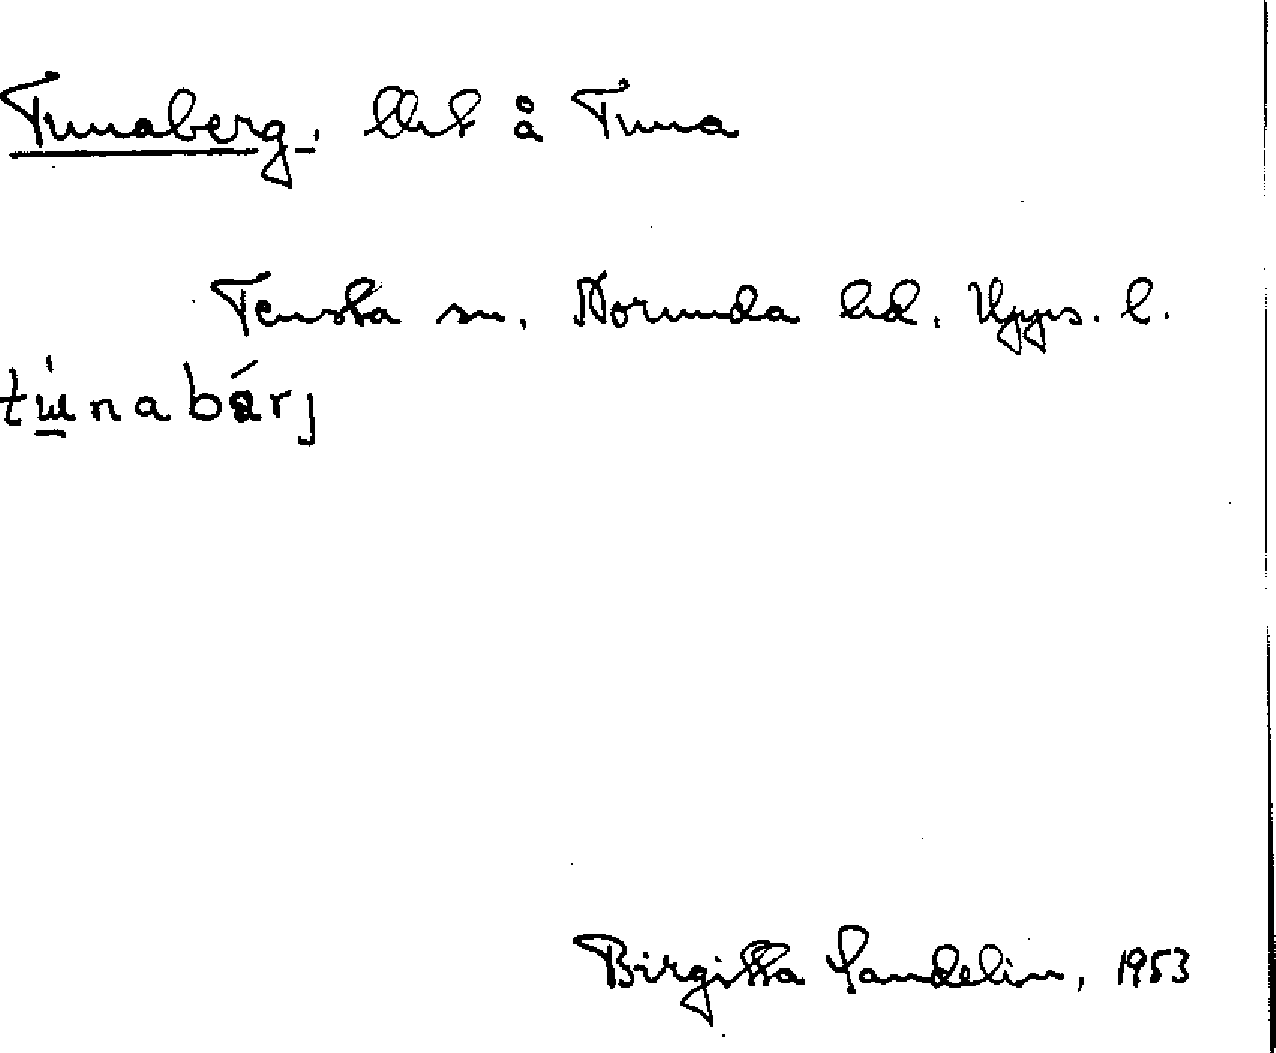 Tunaberg, Ut å Tuna
Tensta sn. Norunda hd. Upps. l.
tɯ́nabárj
Birgitta Sandelin, 1953